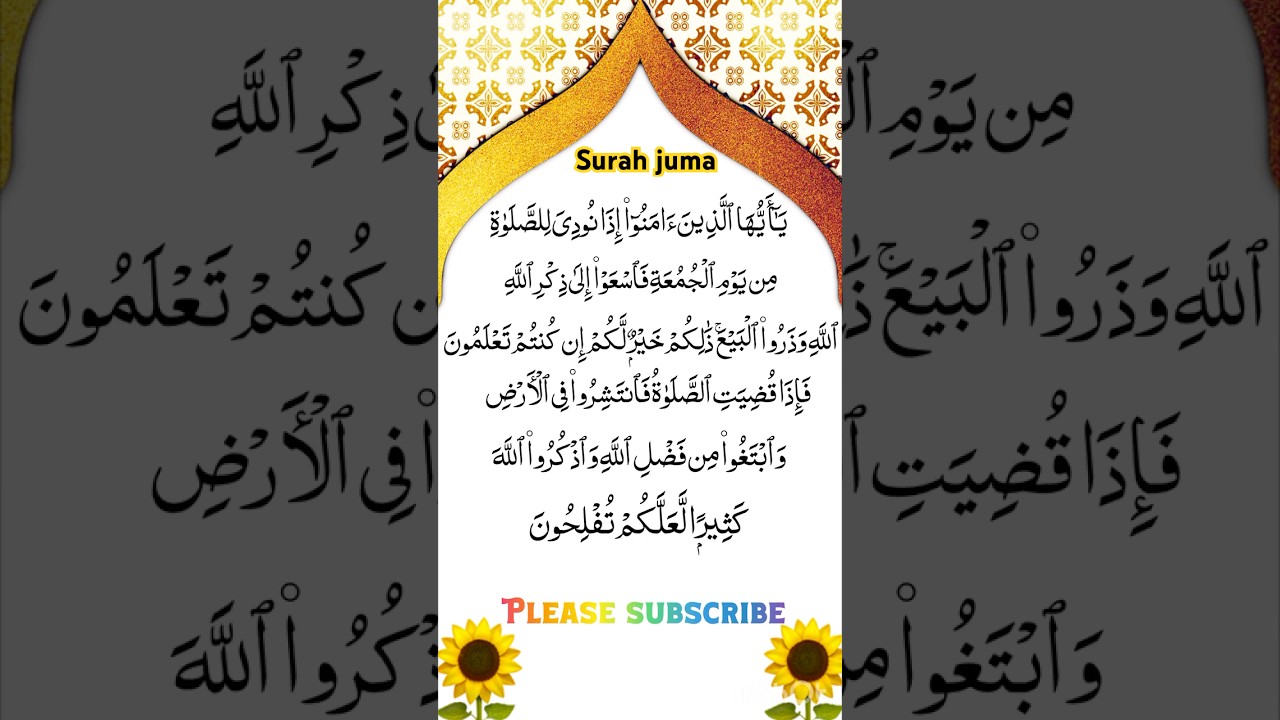 Surah juma
يَـٰٓأَيُّهَا ٱلَّذِينَ ءَامَنُوٓا۟ إِذَا نُودِىَ لِلصَّلَوٰةِ
مِن يَوْمِ ٱلْجُمُعَةِ فَٱسْعَوْا۟ إِلَىٰ ذِكْرِ ٱللَّهِ
ٱللَّهِ وَذَرُوا۟ ٱلْبَيْعَ ۚ ذَٰلِكُمْ خَيْرٌۭ لَّكُمْ إِن كُنتُمْ تَعْلَمُونَ
فَإِذَا قُضِيَتِ ٱلصَّلَوٰةُ فَٱنتَشِرُوا۟ فِى ٱلْأَرْضِ
وَٱبْتَغُوا۟ مِن فَضْلِ ٱللَّهِ وَٱذْكُرُوا۟ ٱللَّهَ
كَثِيرًۭا لَّعَلَّكُمْ تُفْلِحُونَ
PLEASE SUBSCRIBE